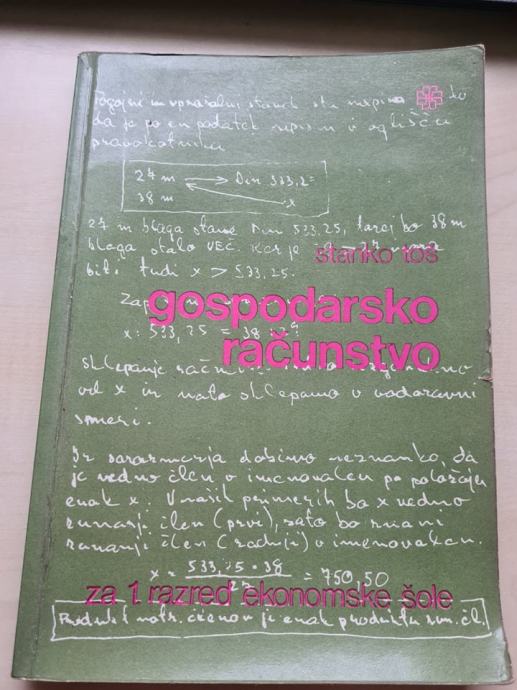 Pogojni in vprašalni stavek sta
da je po en podatek v oglišču
pravokotnika
27 m Din 533,25
38 m x
27 m blaga stane Din 533,25, torej bo 38 m
blaga stalo VEČ. Ker je
stanko toš
biti tudi x > 533,25.
gospodarsko
x : 533,25 = 38 : 27
računstvo
od x in nato sklepamo v vodoravni
smeri.
Iz sorazmerja dobimo neznanko, da
je vedno člen v imenovalcu po položaju
enak x. V naših primerih bo x vedno
zunanji člen (prvi), zato bo znani
zunanji člen (zadnji) v imenovalcu.
x = 533,25 · 38 / 27 = 750,50
za 1. razred ekonomske šole
Produkt notr. členov je enak produktu zun. čl.